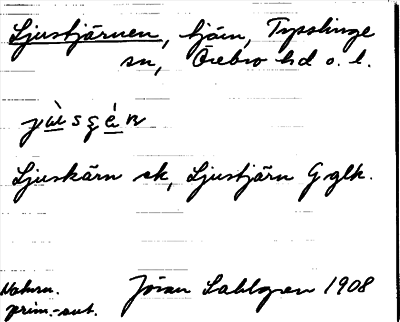 Ljustjärnen, tjärn, Tysslinge
sn, Örebro hd o. l.
Ljuskärn sk, Ljustjärn G glk.
Naturn.
prim.-uut.
Jöran Sahlgren 1908